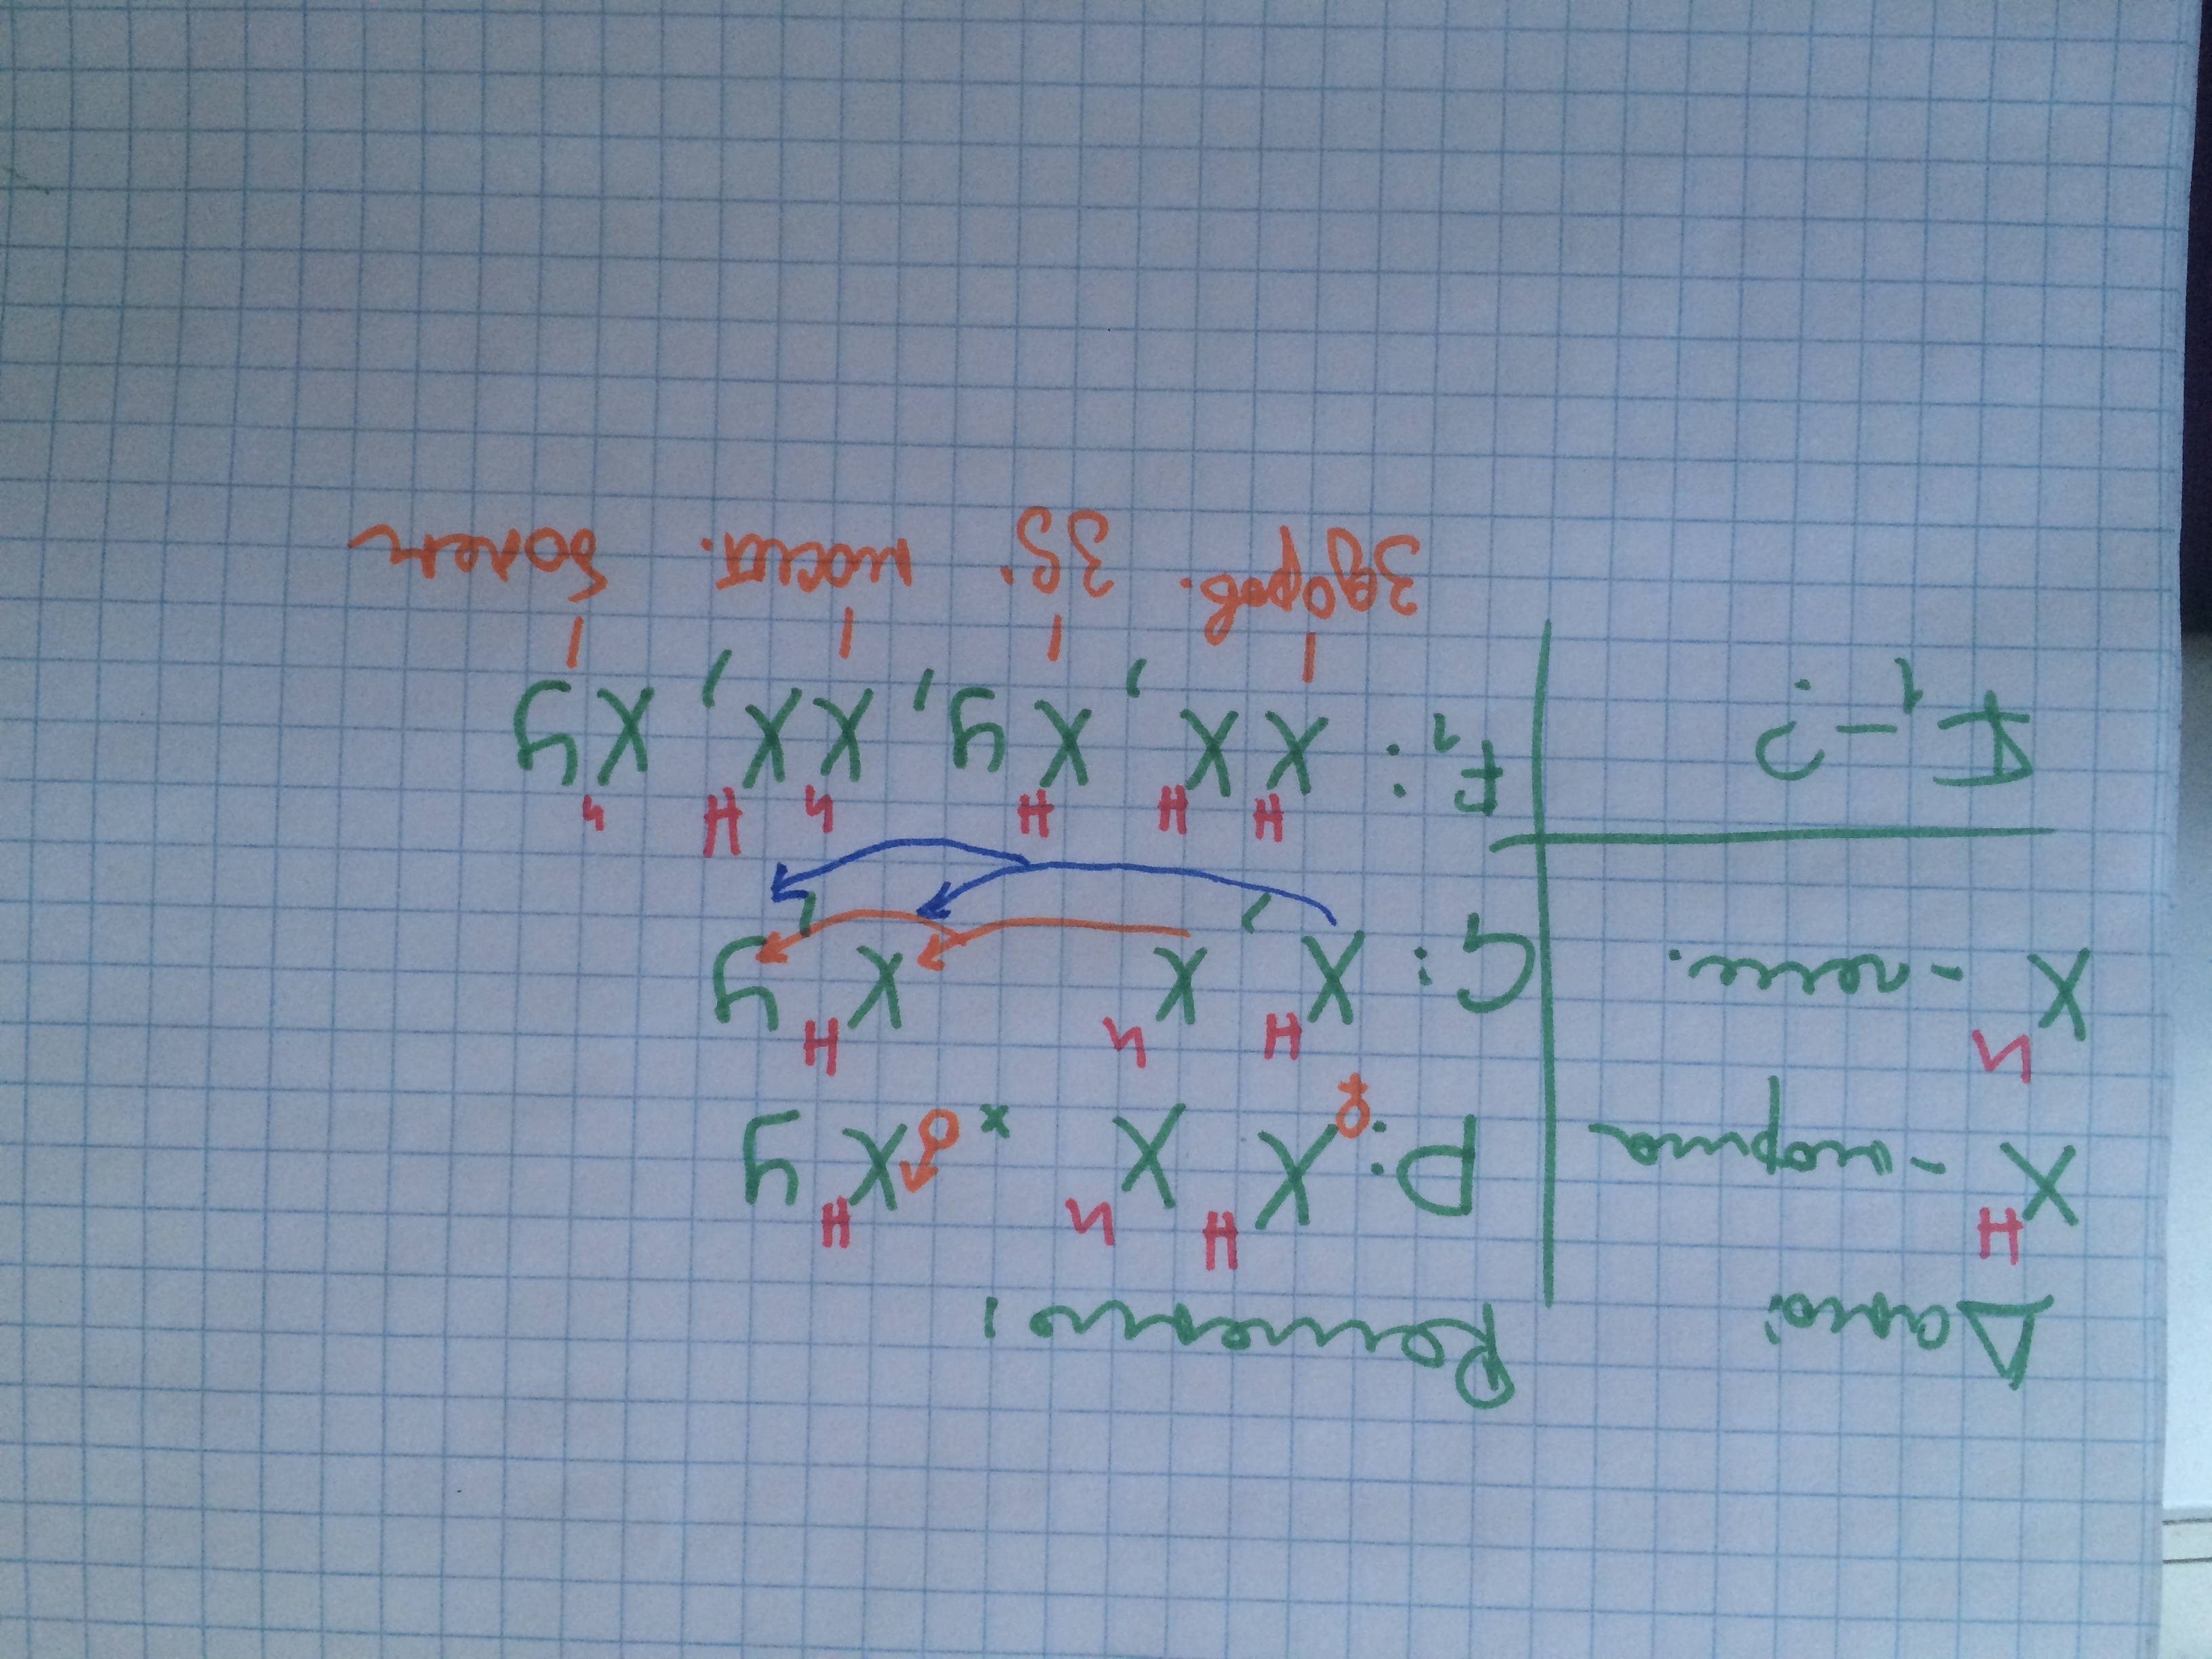 Дано:
Xᴴ - норма
Xʰ - гем.
F₁ - ?
Решение:
P: ♀ Xᴴ Xʰ × ♂ Xᴴ У
G: Xᴴ, Xʰ Xᴴ, У
F₁: XᴴXᴴ, XᴴУ, XʰXᴴ, XʰУ
здоров. зд. носит. болен